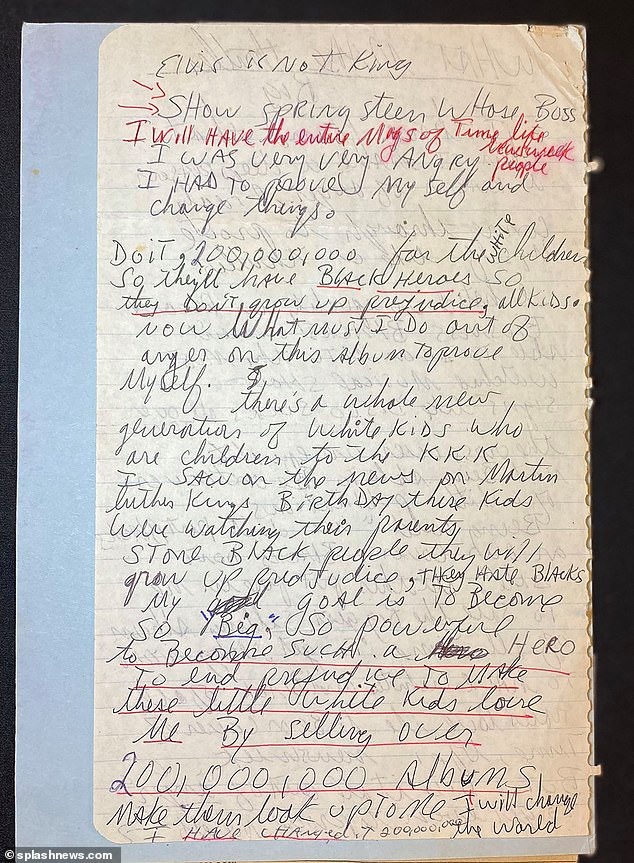 Elvis is Not King
SHow springsteen WHose Boss
I will HAVE the entire Mags of Time life
Newsweek
people
I WAS very very Angry
I HAD To prove My self and
change things.
DO it, 200,000,000 for the white children
So they'll have Black Heroes So
they Don't grow up prejudice, all KiDs.
now What must I Do out of
anger on this Album To prove
Myself.
there's a whole new
generation of White KiDs who
are children to the KKK
I SAW on the news on Martin
luther Kings BirthDAY these Kids
were watching their parents
STONE BlACK people they will
grow up prudjudice, THey HAte BlAcks
My goal is To Become
So "Big", So powerful
to Become Such a HERO
To end prejudice To MAKe
these little white Kids love
Me By Selling over
200,000,000 AlbumS
Make them look up To Me I will change
the world
I HAVE changed it 200000,000
© splashnews.com